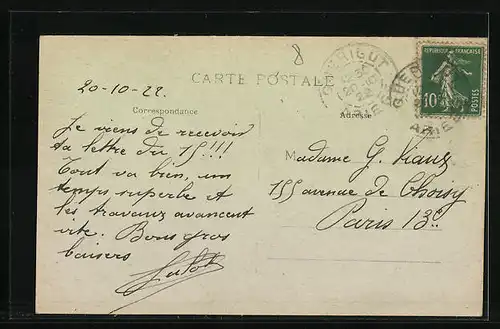 8
QUERIGUT
ARIEGE
REPUBLIQUE FRANÇAISE
10c
POSTES
CARTE POSTALE
20-10-22.
Correspondance
Adresse
Je viens de recevoir
ta lettre du 15!!!
Tout va bien, un
temps superbe et
les travaux avancent
vite. Bons gros
baisers
M
Madame G.
155 avenue de Choisy
Paris 13e